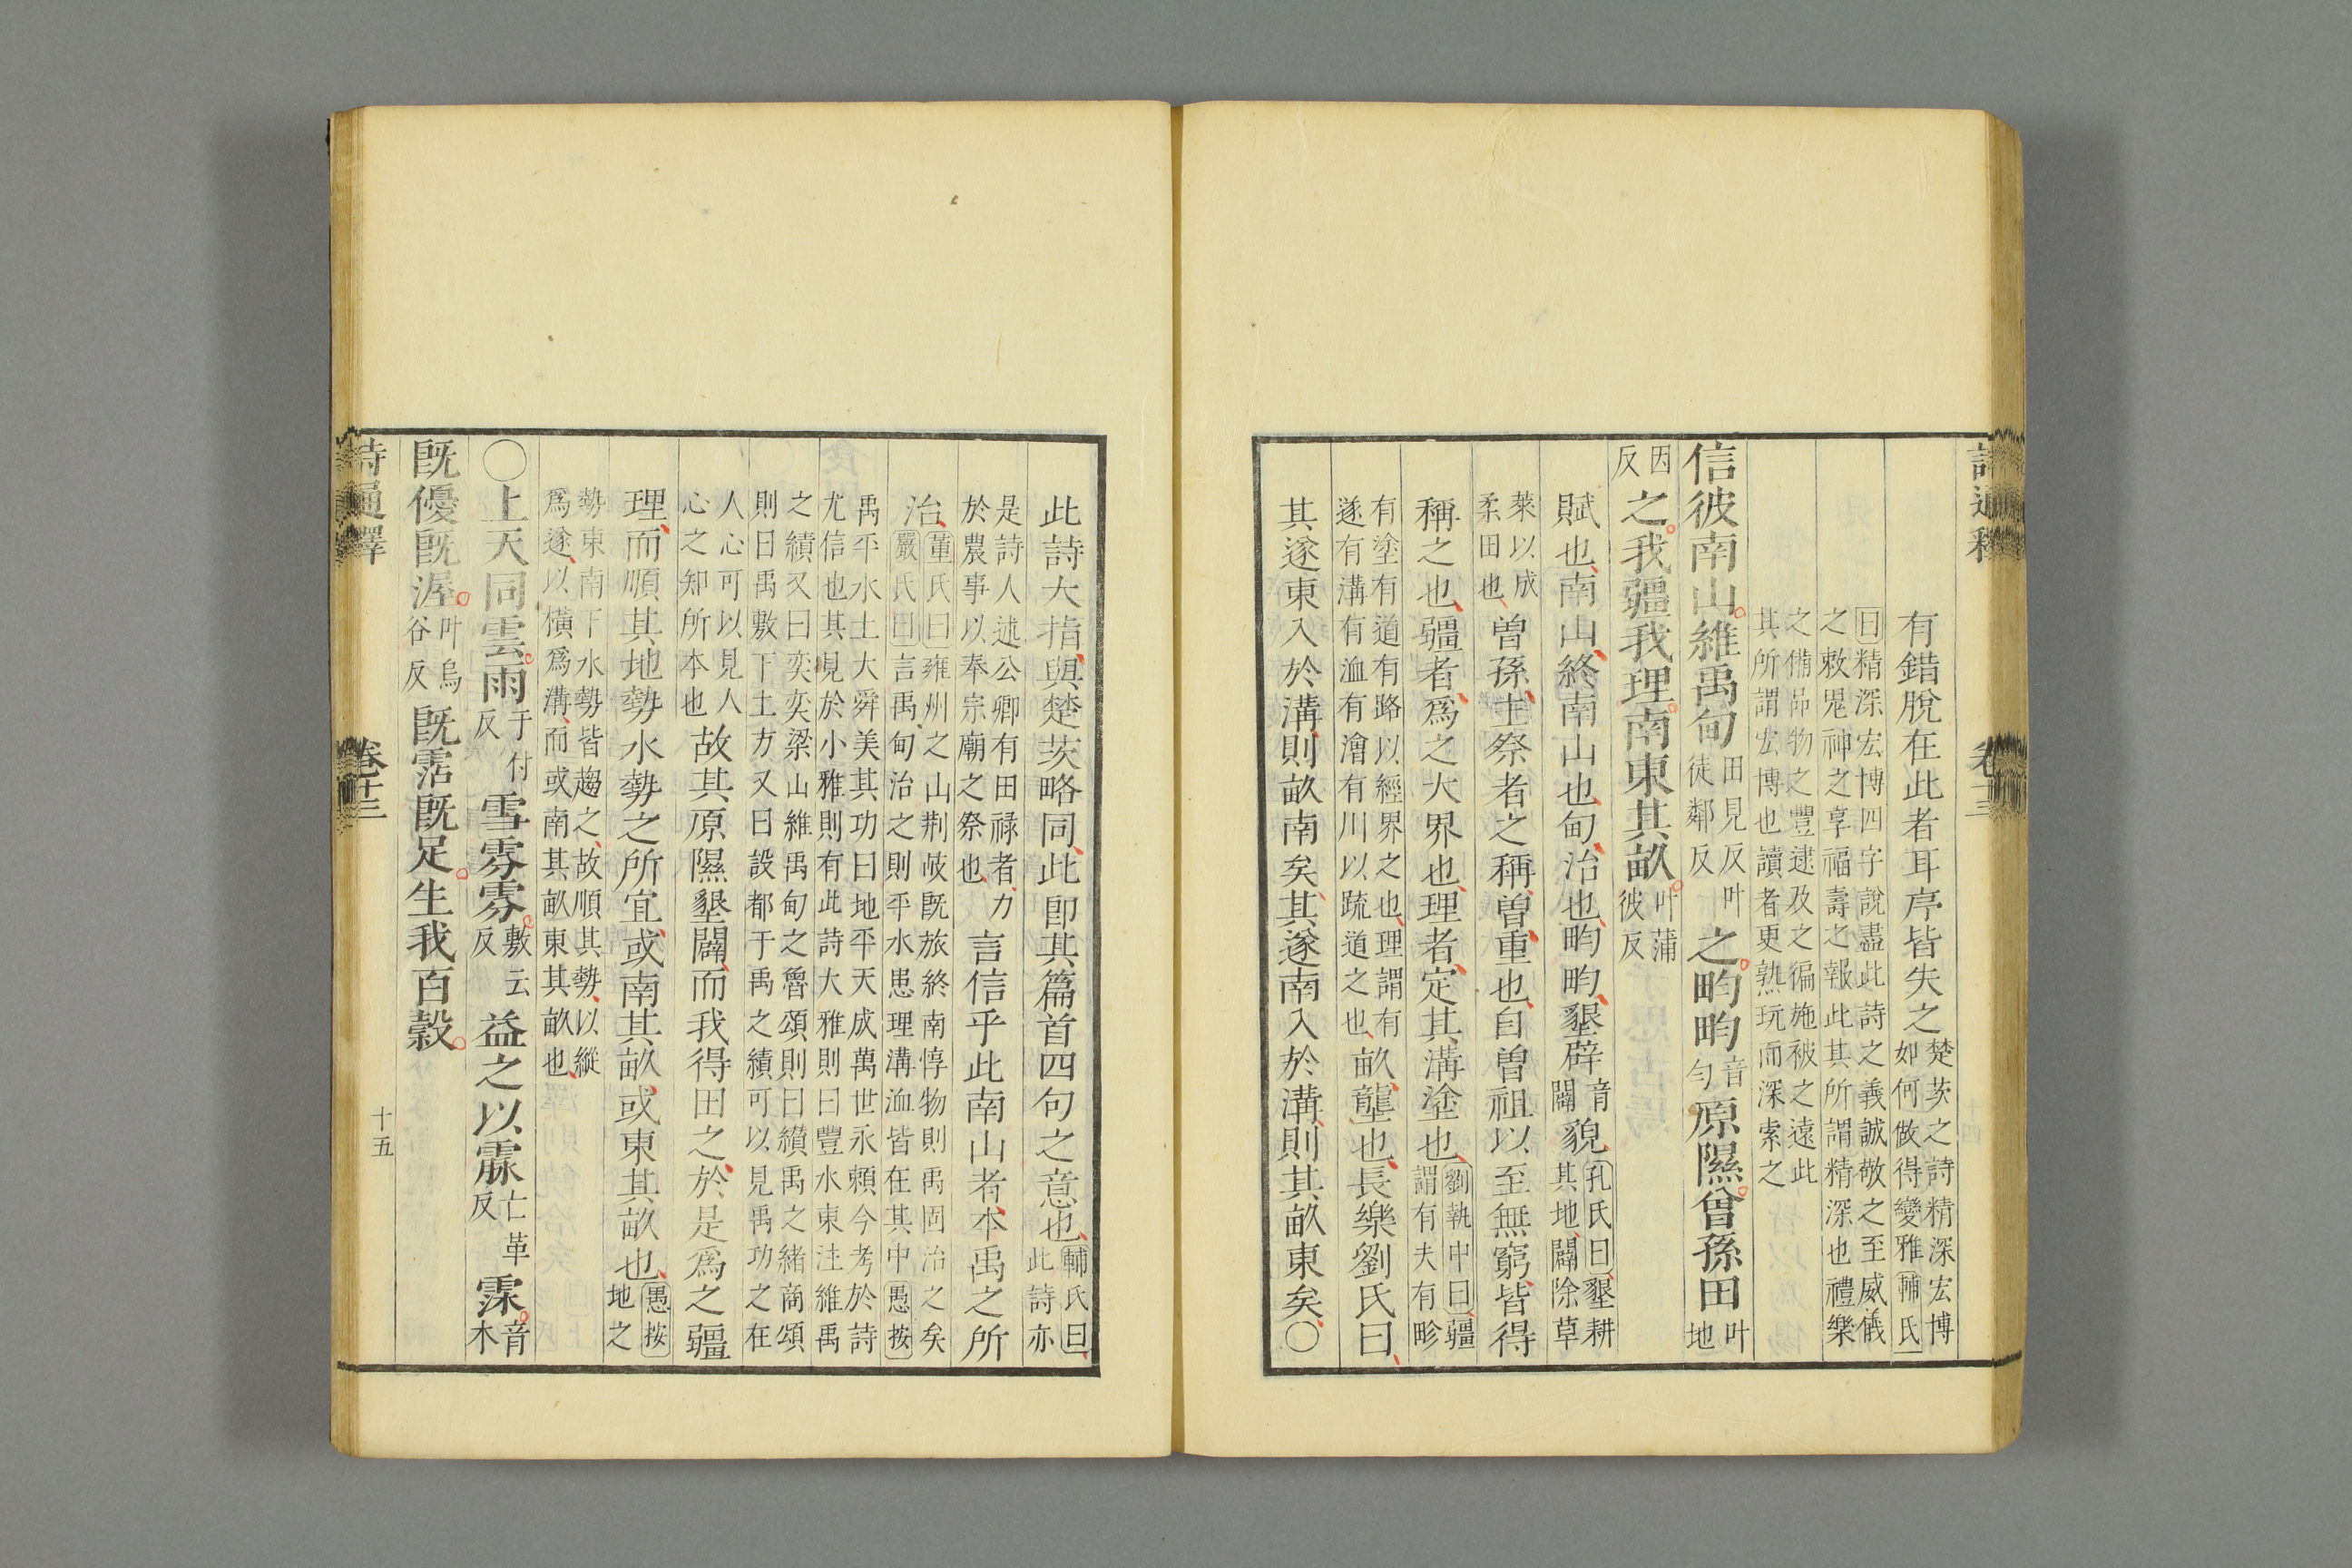 有錯脫在此者耳序皆失之楚茨之詩精深宏博如何做得變雅輔氏
曰精深宏博四字說盡此詩之義誠敬之至威儀之敕鬼神之享福壽之報此其所謂精深也禮樂
之備品物之豐逮及之徧施被之遠此其所謂宏博也讀者更熟玩而深索之
信彼南山維禹甸田見反叶徒鄰反之畇畇音勻原隰曾孫田叶地
因反之我疆我理南東其畝叶蒲彼反
賦也南山終南山也甸治也畇畇墾辟音闢貌孔氏曰墾耕其地闢除草
萊以成柔田也曾孫主祭者之稱曾重也自曾祖以至無窮皆得
稱之也疆者爲之大界也理者定其溝塗也劉執中曰疆謂有夫有畛
有塗有道有路以經界之也理謂有遂有溝有洫有澮有川以疏道之也畝壟也長樂劉氏曰
其遂東入於溝則畝南矣其遂南入於溝則其畝東矣○
此詩大指與楚茨略同此即其篇首四句之意也輔氏曰此詩亦
是詩人述公卿有田祿者力於農事以奉宗廟之祭也言信乎此南山者本禹之所
治董氏曰雍州之山荆岐既旅終南惇物則禹固治之矣嚴氏曰言禹甸治之則平水患理溝洫皆在其中愚按
禹平水土大舜美其功曰地平天成萬世永賴今考於詩尤信也其見於小雅則有此詩大雅則曰豐水東注維禹
之績又曰奕奕梁山維禹甸之魯頌則曰纘禹之緒商頌則曰禹敷下土方又曰設都于禹之績可以見禹功之在
人心可以見人心之知所本也故其原隰墾闢而我得田之於是爲之疆
理而順其地勢水勢之所宜或南其畝或東其畝也愚按地之
勢東南下水勢皆趨之故順其勢以縱爲遂以橫爲溝而或南其畝東其畝也
○上天同雲雨于付反雪雰雰敷云反益之以霡亡革反霂音木
既優既渥叶烏谷反既霑既足生我百穀
詩通釋
卷十三
十五